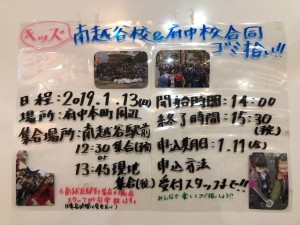 キッズ 南越谷校&府中校合同
ゴミ拾い!!
日程:2019.1.13(日)
場所:府中本町周辺
集合場所:南越谷駅前
12:30集合(予定)
or
13:45現地
集合(予定)
開始時間:14:00
終了時間:15:30
(予定)
申込期日:1.11(金)
申込方法
受付スタッフまで!!
みんなで楽しくゴミ拾いしよう!!